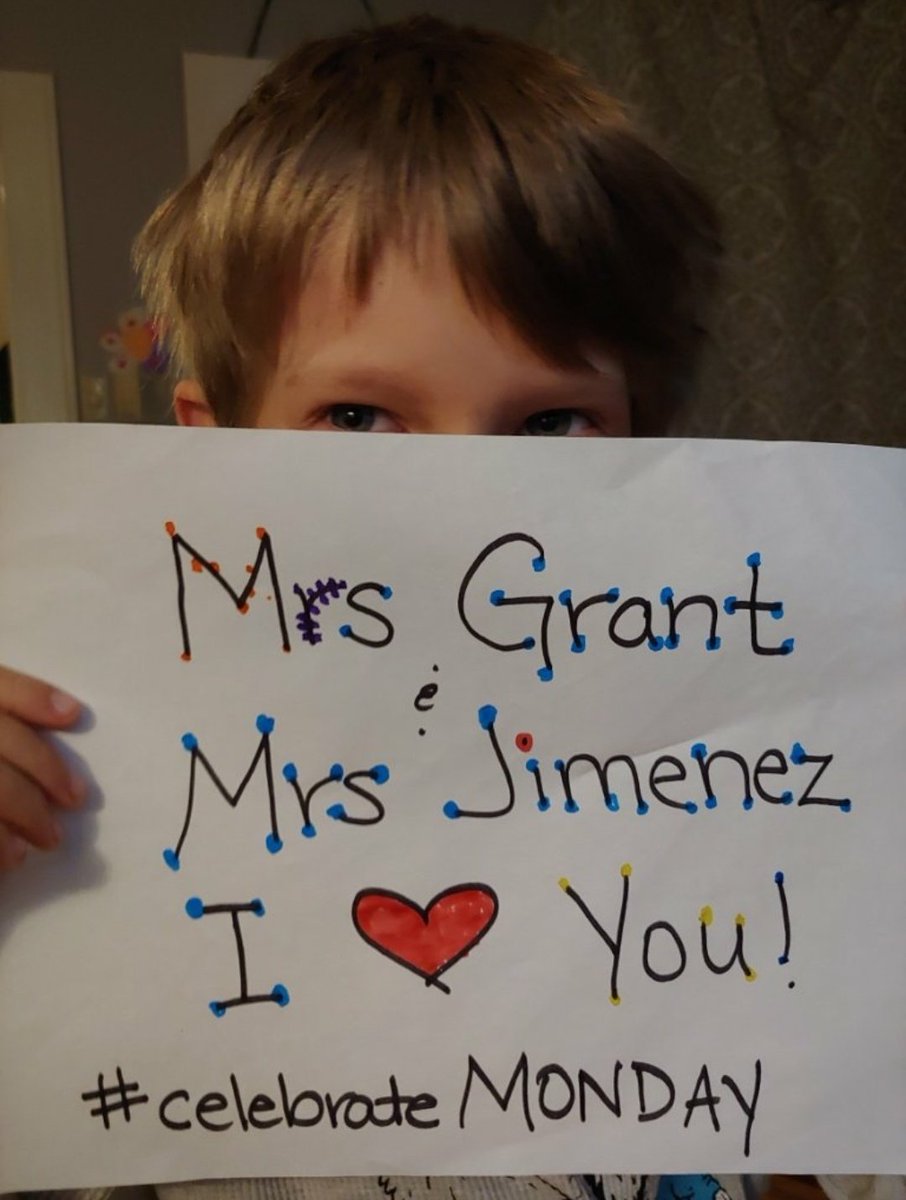 Mrs Grant
&
Mrs Jimenez
I ❤ You!
#celebrate MONDAY